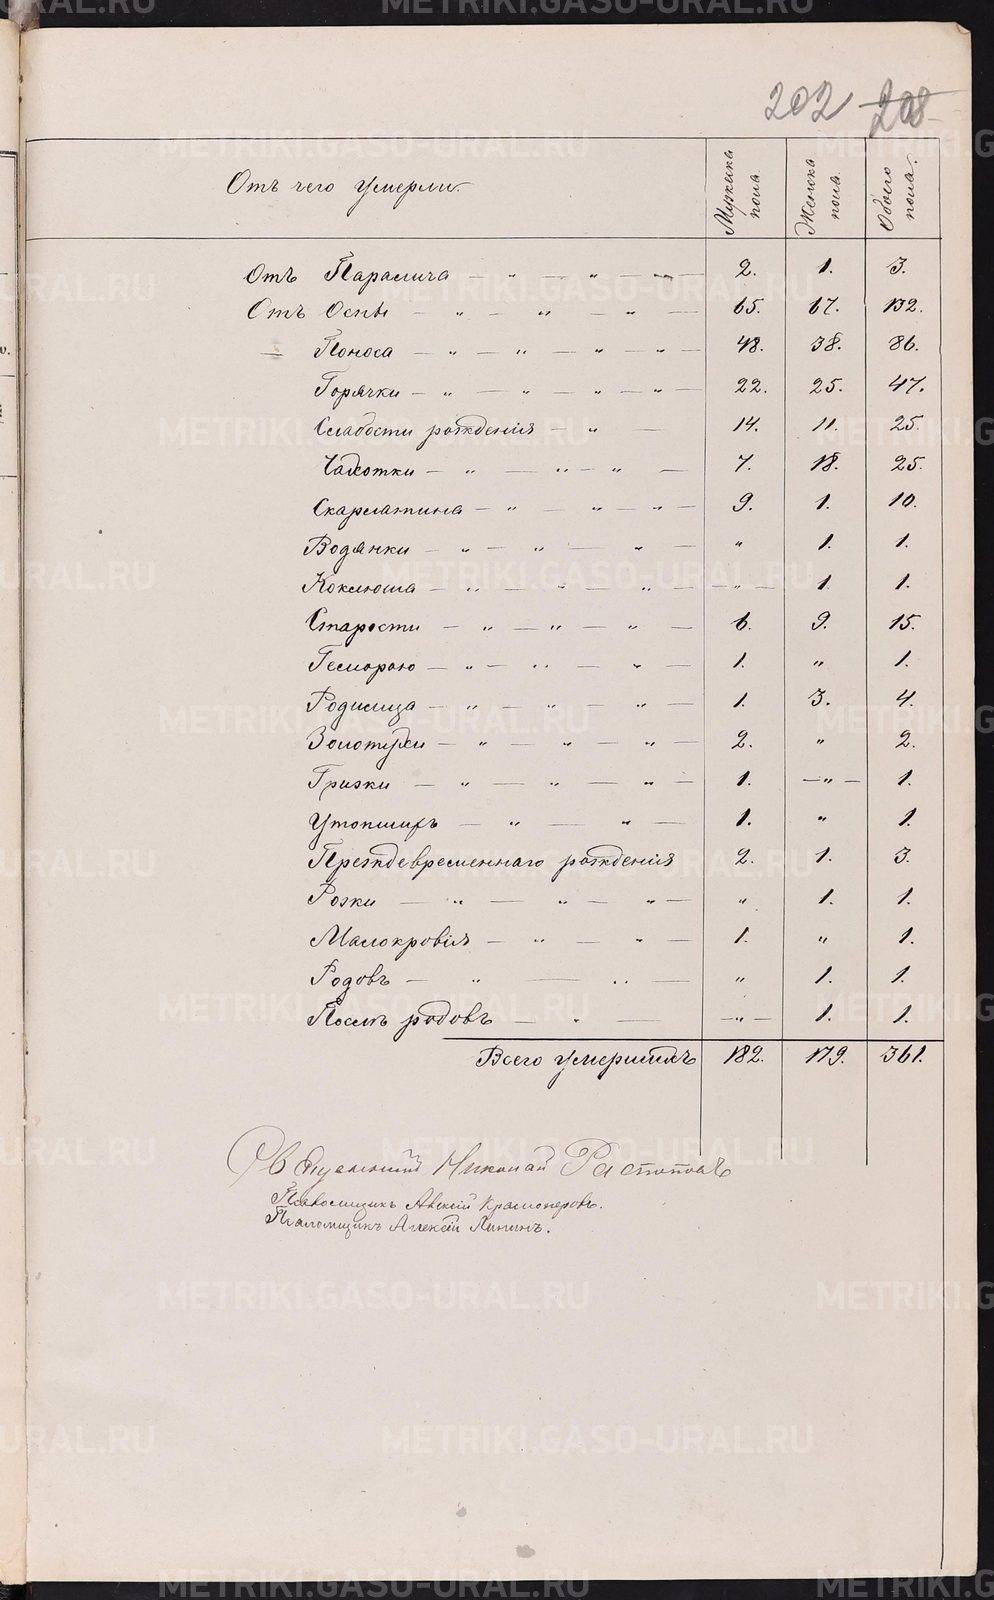 202 208
Отъ чего умерли. Мужска пола. Женска пола. Обоего пола.
Отъ Паралича — „ — „ — „ — 2. 1. 3.
Отъ Оспы — „ — „ — „ — 65. 67. 132.
— Поноса — „ — „ — „ — „ — 48. 38. 86.
Горячки — „ — „ — „ — „ — 22. 25. 47.
Слабости рожденія — „ — 14. 11. 25.
Чахотки — „ — „ — „ — 7. 18. 25.
Скарлатина — „ — „ — „ — 9. 1. 10.
Водянки — „ — „ — „ — „ 1. 1.
Коклюша — „ — „ — „ — „ — 1. 1.
Старости — „ — „ — „ — 6. 9. 15.
Геморою — „ — „ — „ — 1. „ 1.
Родимца — „ — „ — „ — 1. 3. 4.
Золотухи — „ — „ — „ — 2. „ 2.
Грызжи — „ — „ — „ — 1. — „ — 1.
Утопшихъ — „ — „ — 1. „ 1.
Преждевременнаго рожденія 2. 1. 3.
Рожи — „ — „ — „ — „ 1. 1.
Малокровія — „ — „ — 1. „ 1.
Родовъ — „ — „ — „ 1. 1.
Послѣ родовъ — „ — — „ — 1. 1.
Всего умершихъ 182. 179. 361.
Священникъ Николай Растопов
Псаломщикъ Алексій Красноперовъ.
Псаломщикъ Алексій Липинъ.
METRIKI.GASO-URAL.RU